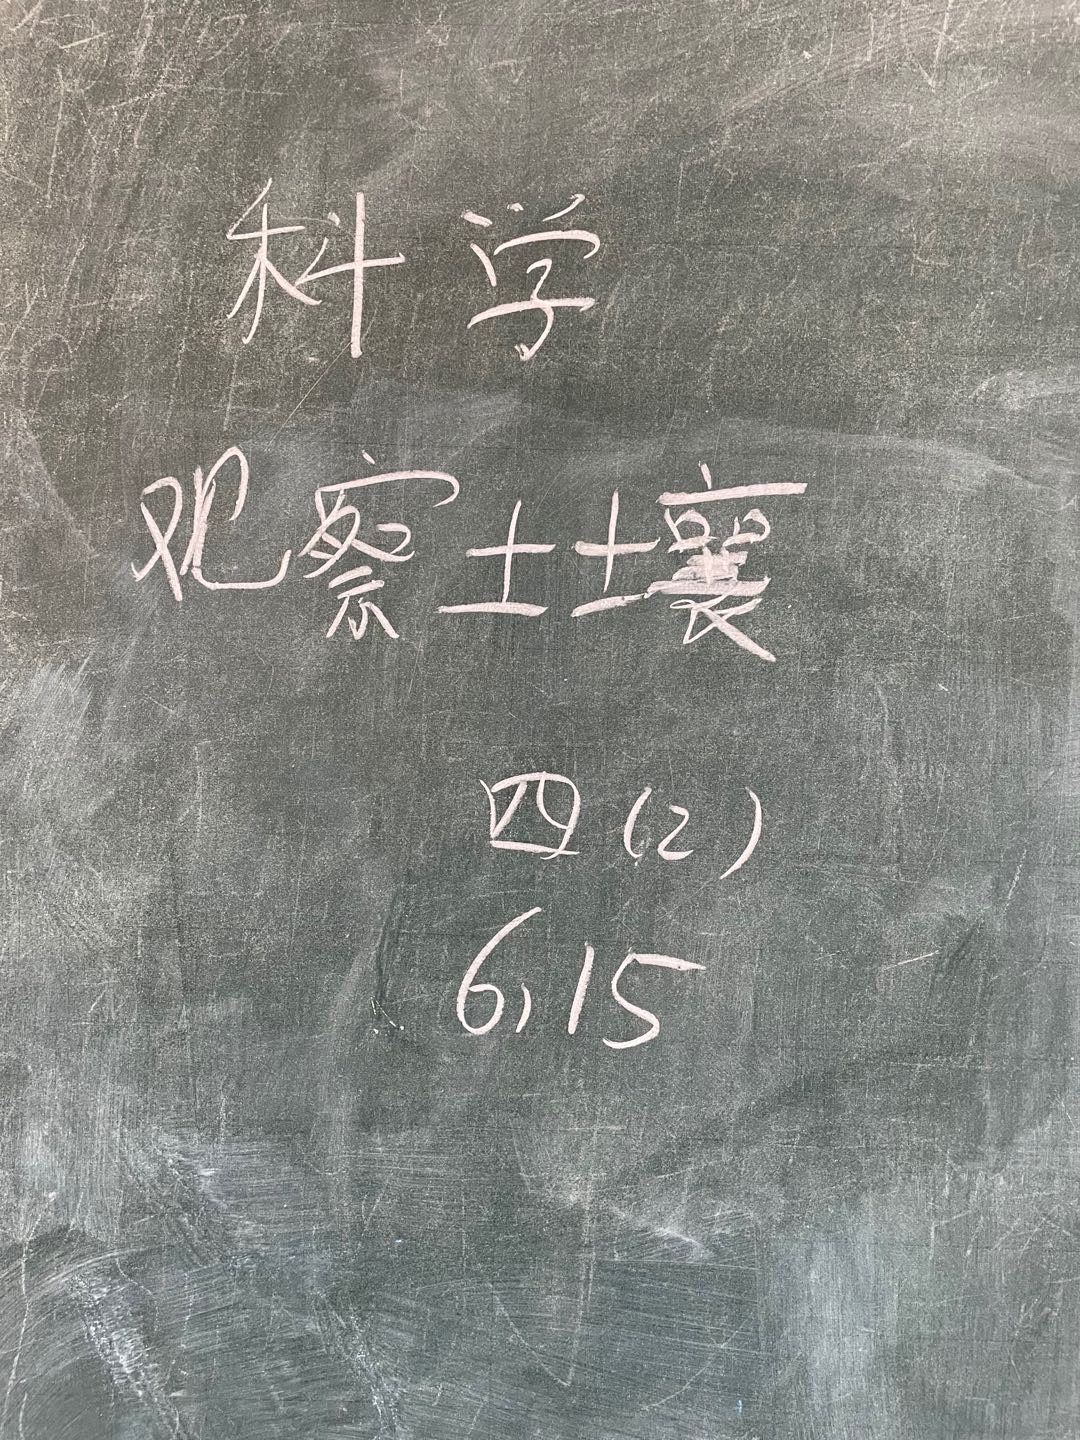 科学
观察土壤
四(2)
6,15